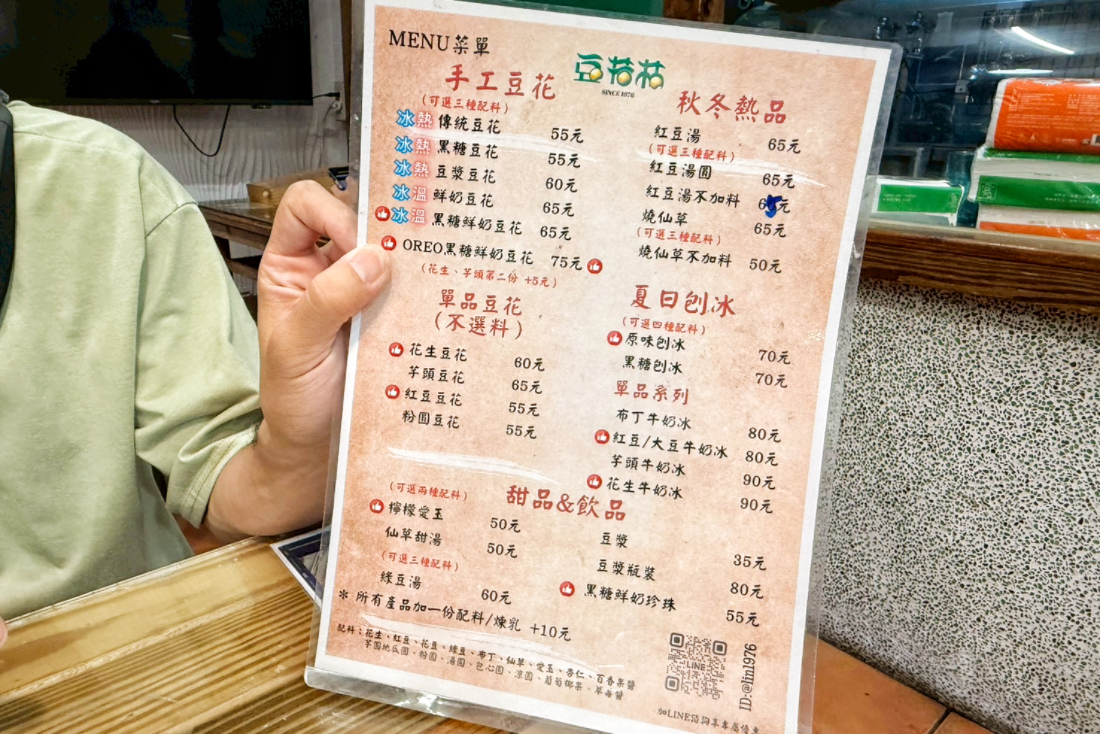 MENU菜單
SINCE 1976
手工豆花
(可選三種配料)
冰 熱 傳統豆花 55元
冰 熱 黑糖豆花 55元
冰 熱 豆漿豆花 60元
冰 溫 鮮奶豆花 65元
冰 溫 黑糖鮮奶豆花 65元
OREO黑糖鮮奶豆花 75元
(花生、芋頭第二份 +5元)
單品豆花
(不選料)
花生豆花 60元
芋頭豆花 65元
紅豆豆花 55元
粉圓豆花 55元
秋冬熱品
紅豆湯 65元
(可選三種配料)
紅豆湯圓 65元
紅豆湯不加料
燒仙草 65元
(可選三種配料)
燒仙草不加料 50元
夏日刨冰
(可選四種配料)
原味刨冰 70元
黑糖刨冰 70元
單品系列
布丁牛奶冰 80元
紅豆/大豆牛奶冰 80元
芋頭牛奶冰 90元
花生牛奶冰 90元
甜品&飲品
(可選兩種配料)
檸檬愛玉 50元
仙草甜湯 50元
(可選三種配料)
綠豆湯 60元
豆漿 35元
豆漿瓶裝 80元
黑糖鮮奶珍珠 55元
* 所有產品加一份配料/煉乳 +10元
配料:花生、紅豆、花豆、綠豆、布丁、仙草、愛玉、杏仁、百香果醬
芋圓地瓜圓、粉圓、湯圓、包心圓、涼圓、葡萄椰果、草莓醬
LINE
加LINE諮詢享專屬優惠